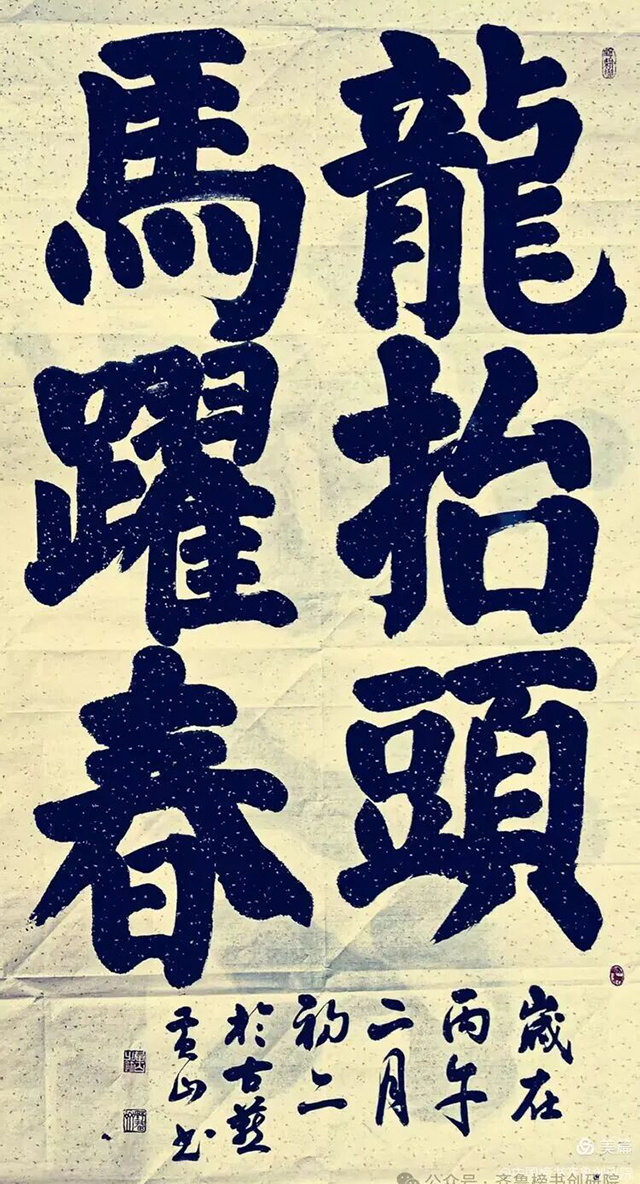 龍抬頭
馬躍春
歲在
丙午
二月
初二
於古
山书
美篇
公众号·齐鲁榜书创研院